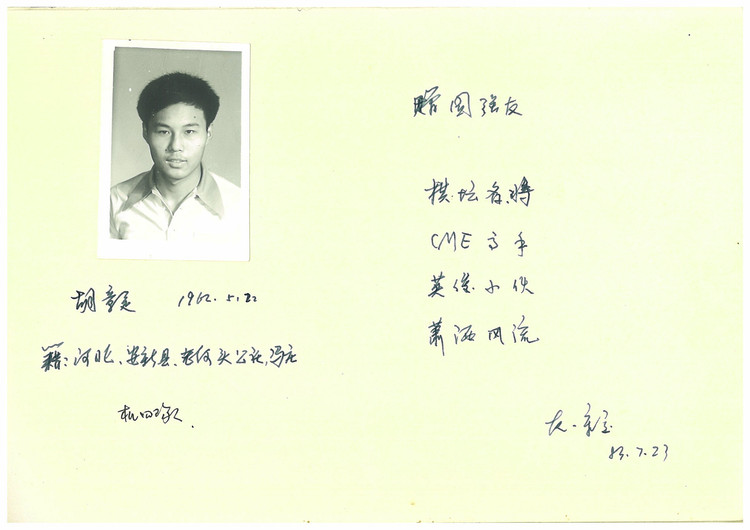 胡 1962.5.22
籍:河北、安新县、老河头公社,冯庄
机四
赠国强友
棋坛名将
CME高手
英俊小伙
萧洒风流
友.
83.7.23